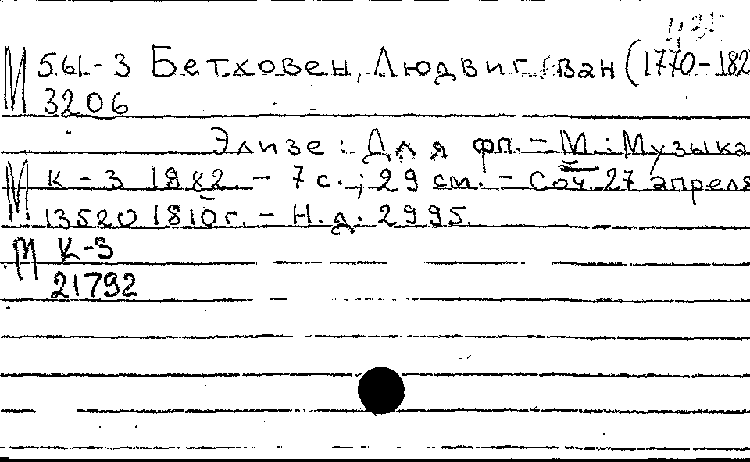 М 561-3 Бетховен, Людвиг ван (1770-182
3206
Элизе: Для фп. - М.: Музыка
М К-3 1982. - 7 с.; 29 см. - Соч. 27 апреля
13520 1810 г. - Н.д. 2995.
М К-3
21792